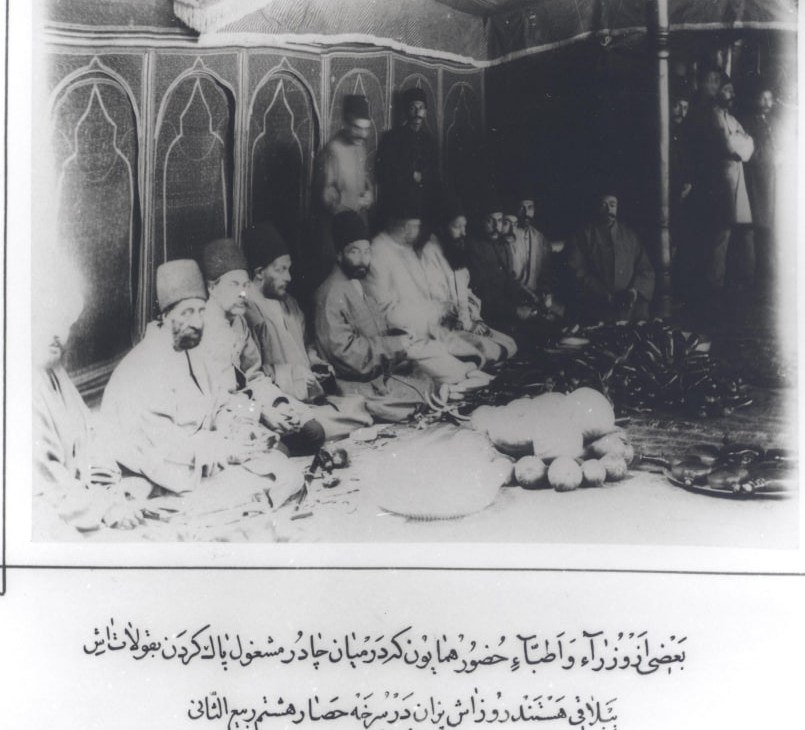 بَعْضى اَزْ وُزَرٰآء وَ اَطِبّٰآءِ حُضُورْ هُمٰايُون كه دَر مِيٰان چٰادُر مشغول پٰاك كردَن بقولاتِ اٰش
يَيلٰاقى هَسْتَنْد روز اٰش پزٰان دَرْ سُرخَه حصٰار هشتم ربيع الثّانى